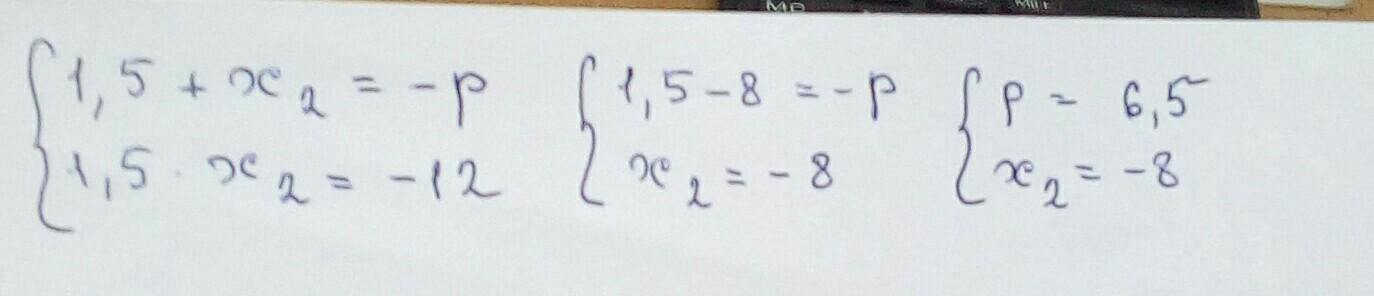 1,5 + x₂ = -p
1,5 · x₂ = -12
1,5 - 8 = -p
x₂ = -8
p = 6,5
x₂ = -8